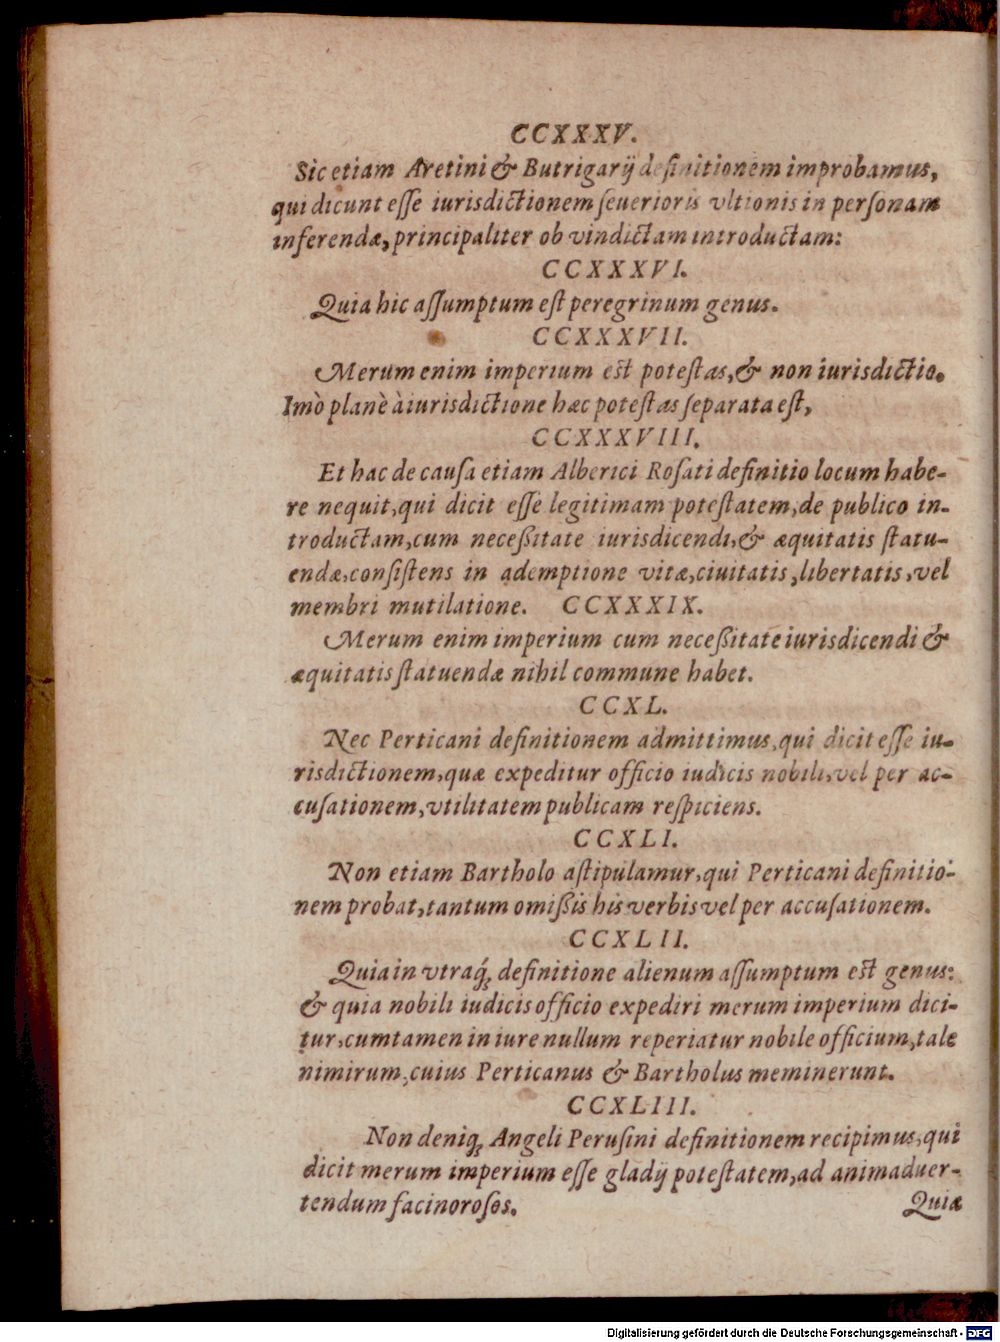 CCXXXV.
Sic etiam Aretini & Butrigarij definitionem improbamus,
qui dicunt eſſe iurisdictionem ſeuerioris vltionis in perſonam
inferendæ, principaliter ob vindictam introductam:
CCXXXVI.
Quia hic aſſumptum eſt peregrinum genus.
CCXXXVII.
Merum enim imperium est poteſtas, & non iurisdictio.
Imò planè à iurisdictione hæc poteſtas ſeparata eſt,
CCXXXVIII.
Et hac de cauſa etiam Alberici Roſati definitio locum habe-
re nequit, qui dicit eſſe legitimam poteſtatem, de publico in-
troductam, cum neceßitate iurisdicendi, & æquitatis ſtatu-
endæ, conſiſtens in ademptione vitæ, ciuitatis, libertatis, vel
membri mutilatione. CCXXXIX.
Merum enim imperium cum neceßitate iurisdicendi &
æquitatis ſtatuendæ nihil commune habet.
CCXL.
Nec Perticani definitionem admittimus, qui dicit eſſe iu-
risdictionem, quæ expeditur officio iudicis nobili, vel per ac-
cuſationem, vtilitatem publicam reſpiciens.
CCXLI.
Non etiam Bartholo aſtipulamur, qui Perticani definitio-
nem probat, tantum omißis his verbis vel per accuſationem.
CCXLII.
Quia in vtraq́; definitione alienum aſſumptum est genus:
& quia nobili iudicis officio expediri merum imperium dici-
tur, cum tamen in iure nullum reperiatur nobile officium, tale
nimirum, cuius Perticanus & Bartholus meminerunt.
CCXLIII.
Non deniq; Angeli Peruſini definitionem recipimus, qui
dicit merum imperium eſſe gladij poteſtatem, ad animaduer-
tendum facinoroſos.
Quia
Digitalisierung gefördert durch die Deutsche Forschungsgemeinschaft - DFG